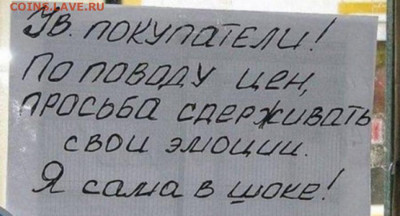 COINS.LAVE.RU
Ув. покупатели!
По поводу цен,
просьба сдерживать
свои эмоции.
Я сама в шоке!